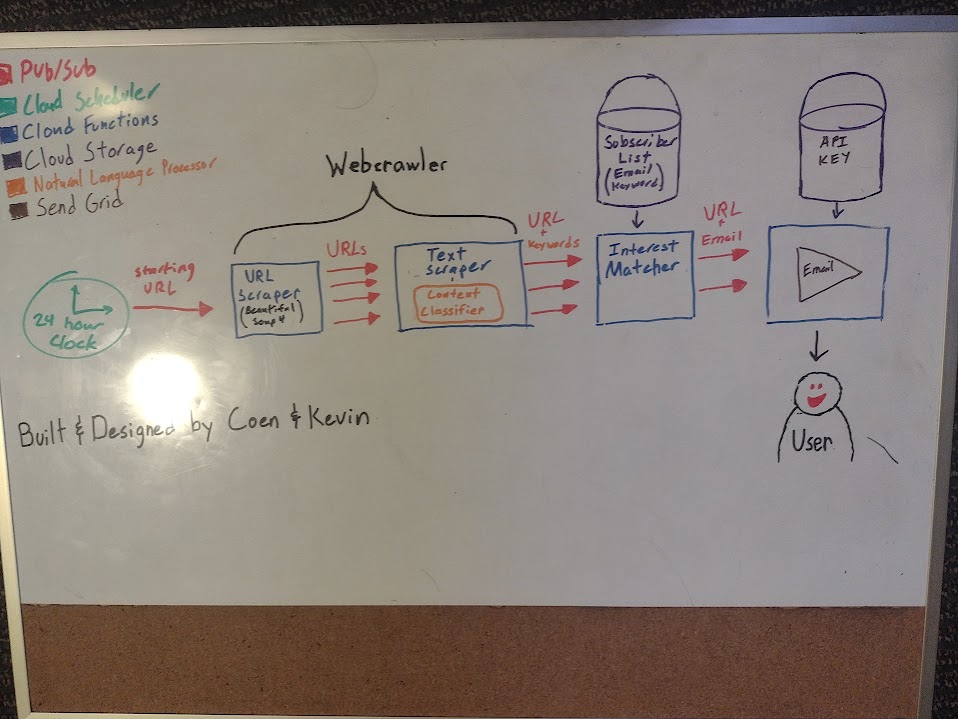 Pub/Sub
Cloud Scheduler
Cloud Functions
Cloud Storage
Natural Language Processor
Send Grid
Webcrawler
24 hour
Clock
starting
URL
URL
Scraper
(Beautiful
Soup 4)
URLs
Text
Scraper
Context
Classifier
URL
+
Keywords
Subscriber
List
(Email
Keyword)
Interest
Matcher
URL
+
Email
API
KEY
Email
User
Built & Designed by Coen & Kevin